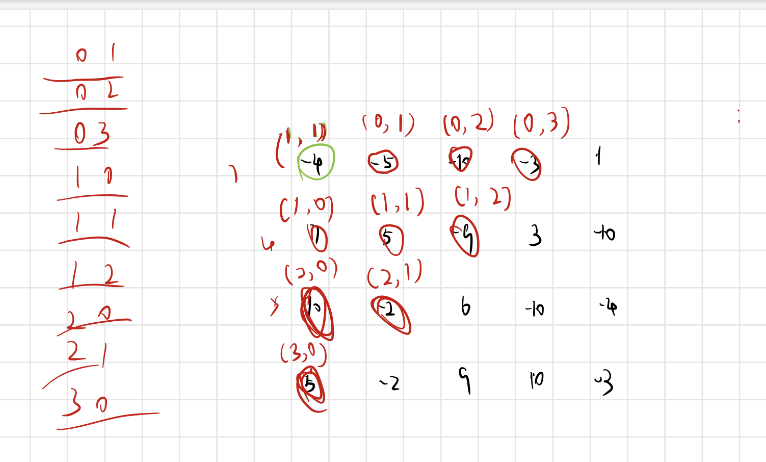 0 1
0 2
0 3
1 0
1 1
1 2
2 0
2 1
3 0
(1, 1) (0, 1) (0, 2) (0, 3)
-4 -5 -10 -3 1
(1, 0) (1, 1) (1, 2)
1 5 -9 3 -10
(2, 0) (2, 1)
10 -2 6 -10 -4
(3,0)
5 -2 9 10 -3